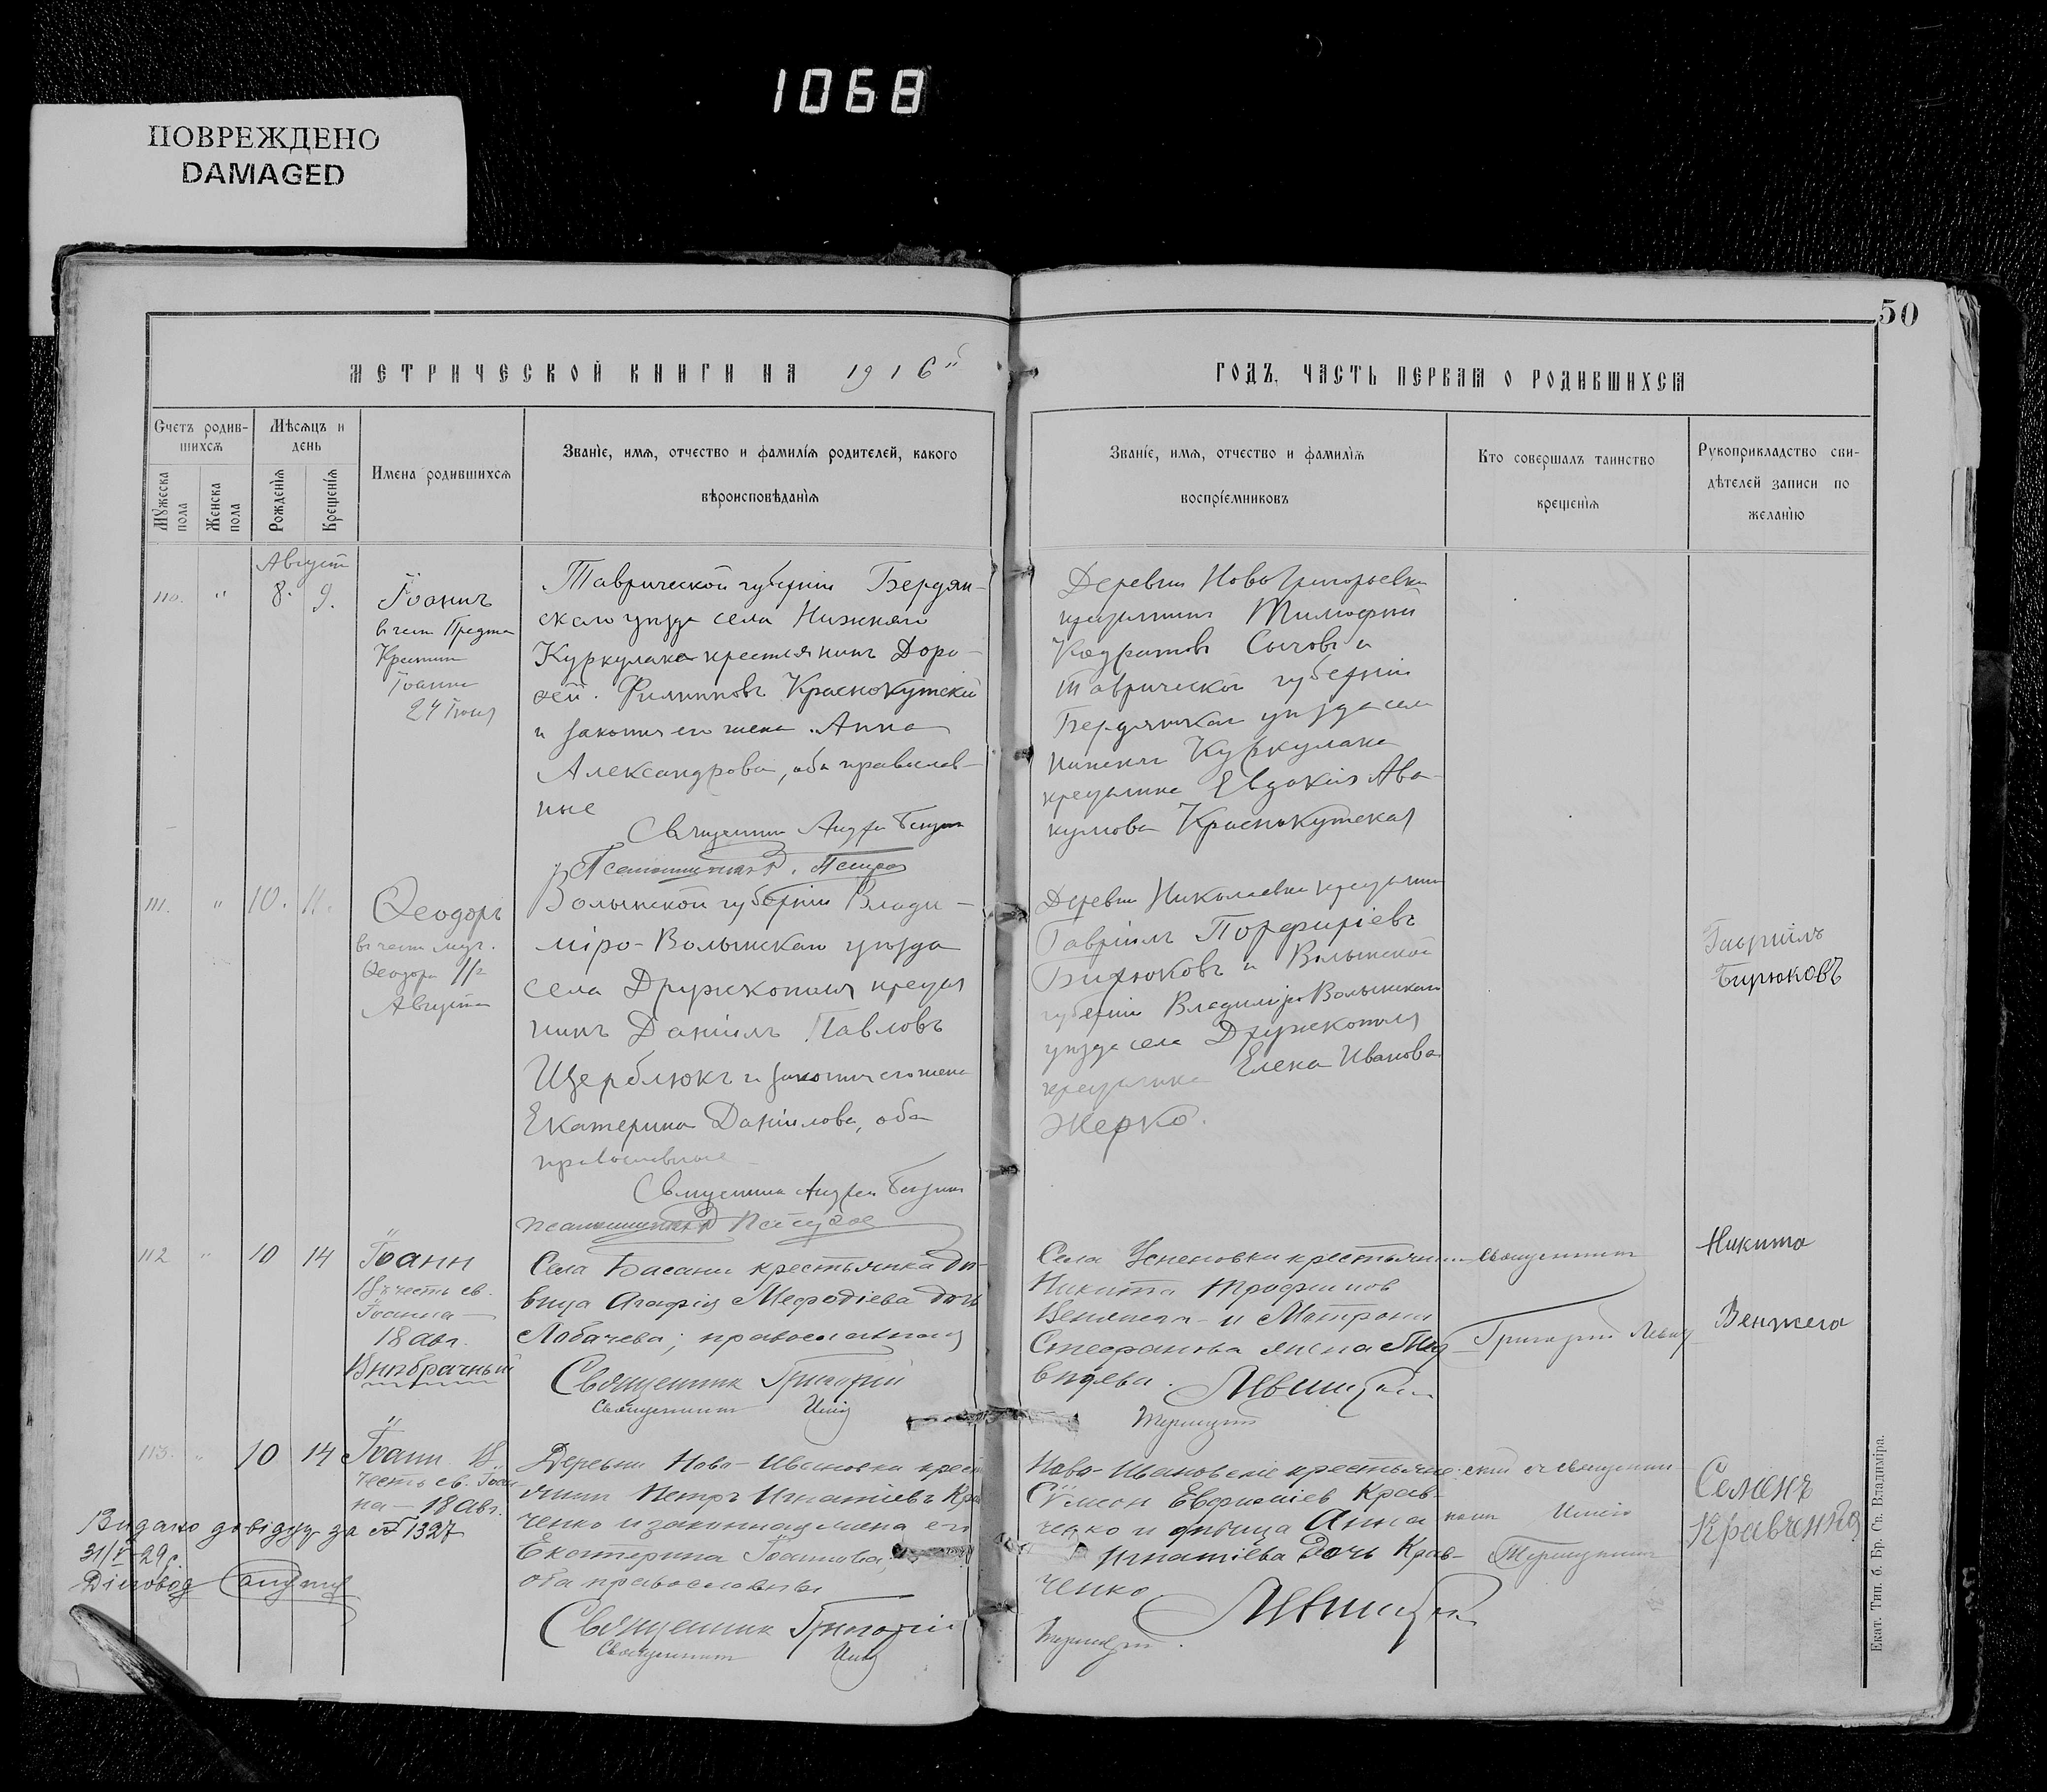 1068
ПОВРЕЖДЕНО
DAMAGED
50
МЕТРИЧЕСКОЙ КНИГИ НА 1916й
ГОДЪ, ЧАСТЬ ПЕРВАЯ О РОДИВШИХСЯ
Счетъ родив-
шихся
Мужеска
пола
Женска
пола
Мѣсяцъ и
день
Рожденія
Крещенія
Имена родившихся
Званіе, имя, отчество и фамилія родителей, какого
вѣроисповѣданія
Званіе, имя, отчество и фамилія
воспріемниковъ
Кто совершалъ таинство
крещенія
Рукоприкладство сви-
дѣтелей записи по
желанію
Август
110. " 8. 9.
Іоаннъ
в чест Предтечи
Крестит
Іоанна
24 Іюня
Таврической губерніи Бердян-
скаго уѣзда села Нижняго
Куркулака крестьянинъ Доро-
ѳей Филипповъ Краснокутскій
и законн его жена Анна
Александрова, оба православ-
ные
Священник Андрей
Псаломщикъ
Деревни НовоГригорьевки
крестьянин Тимофей
Кодратовъ Сычовъ и
Таврической губерніи
Бердянскаго уѣзда села
Нижняго Куркулака
крестьянка Евдокія Ава-
кумова Краснокутская
111. " 10. 11.
Ѳеодоръ
в чест муч.
Ѳеодора 11го
Августа
Волынской губерніи Влади-
міро-Волынскаго уѣзда
села Дружкополя крестья
нинъ Даніилъ Павловъ
Щерблюкъ и законн его жена
Екатерина Даніилова, оба
православные
Священник Андрей
псаломщикъ
Деревни Николаевки крестьянин
Гавріилъ Порфиріевъ
Бирюковъ и Волынской
губерніи Владиміро Волынскаго
уѣзда села Дружкополя
крестьянка Елена Иванова
Жерко.
Гавріилъ
Бирюковъ
112 " 10 14
Іоанн
Въ честь св.
Іоанна
18 авг.
Внѣбрачный
Села Басани крестьянка дѣ-
вица Агафія Мефодіева дочь
Лобачева; православная
Священник Григорій
Священник
Села Успеновки крестьянин
Никита Трофимов
Венжега и Матрона
Стефанова жена
Левицкій
священник
Григорій
Никита
Венжега
113. " 10 14
Іоанн В
честь св. Іоан
на - 18 авг.
Деревни Ново-Ивановки крест
янин Петръ Игнатіевъ Крав
ченко и законная жена его
Екатерина Іоаннова,
оба православны
Священник Григорій
Священник
Ново-Ивановскіе крестьяне:
Сѵмеон Евфиміев Крав-
ченко и дѣвица Анна
Игнатіева Дочь Крав-
ченко
Левицкій
Семенъ
Кравченко
Видано довідку за № 1327
31/V-29 р.
Діловод
Екат. Тип. б. Бр. Св. Владиміра.